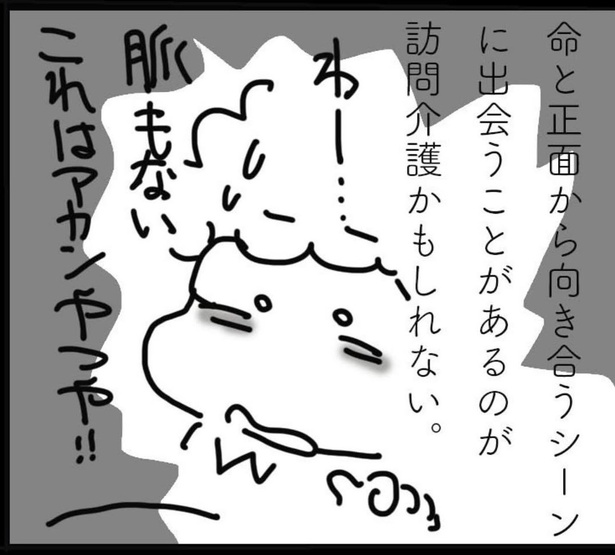 命と正面から向き合うシーン
に出会うことがあるのが
訪問介護かもしれない。
わー…
脈もない
これはアカンやつや!!